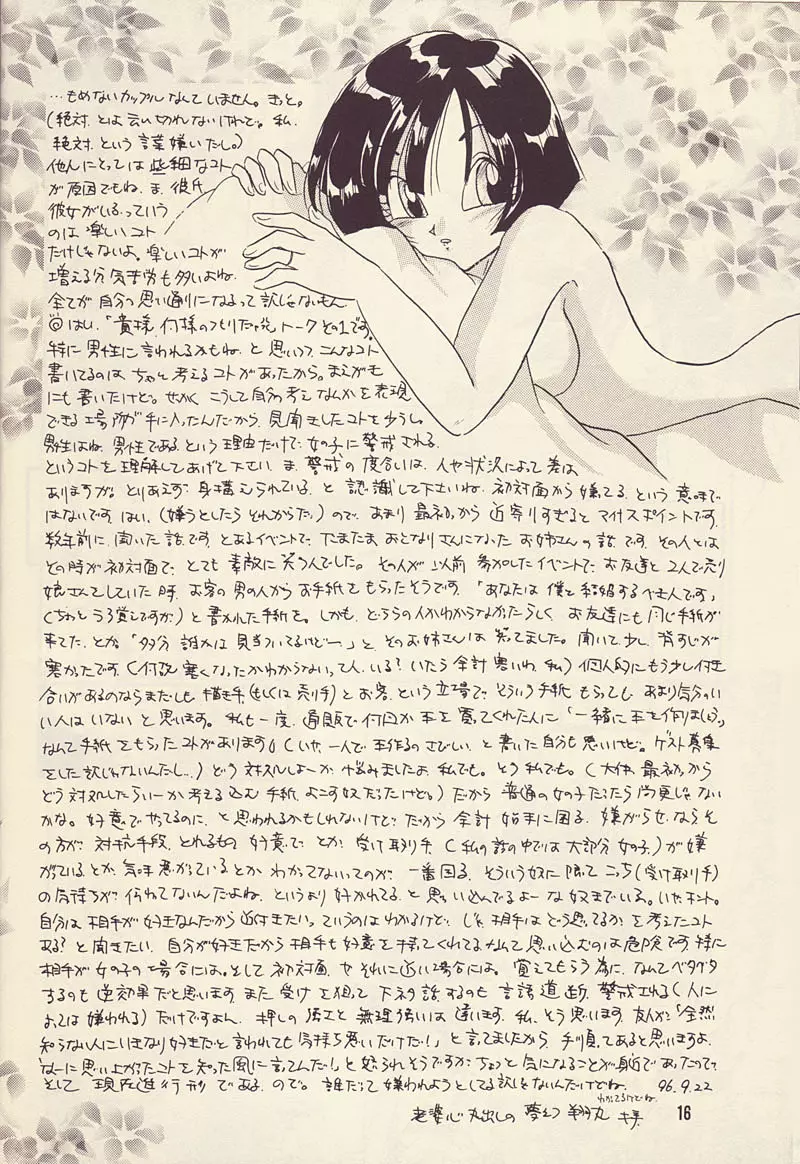 …もめないカップルなんていません。きっと。
(絶対、とは言い切れないけれど。私、
絶対、という言葉嫌いだし。)
他人にとっては些細なコト
が原因でもね。ま、彼氏
彼女がいるっていう
のは楽しいコト
だけじゃないよ。楽しいコトが
増える分気苦労も多いよね。
全てが自分の思い通りになるって訳じゃないもん
はい、「貴様、何様のつもりだ トークその1です。
特に男性に言われるかもね、と思いつつ、こんなコト
書いてるのはちょっと考えるコトがあったから。まえがき
にも書いたけど。せっかくこうして自分の考えなんかを表現
できる場所が手に入ったんだから、見聞きしたコトを少し。
男性はね、男性である、という理由だけで女の子に警戒される。
というコトを理解してあげて下さい。ま、警戒の度合いは、人や状況によって差は
ありますが。とりあえず身構えられている、と認識して下さいね。初対面から嫌ってる、という意味で
はないです、はい。(嫌うとしたらそれからだ。)ので、あまり最初から近寄りすぎるとマイナスポイントです。
数年前に聞いた話です。とあるイベントで、たまたまおとなりさんになったお姉さんの話です。その人とは
その時が初対面で、とても素敵に笑う人でした。その人が以前参加したイベントで、お友達と2人で売り
娘さんをしていた時、お客の男の人からお手紙をもらったそうです。「あなたは僕と結婚するべき人です」
(ちょっとうろ覚えですが)と書かれた手紙を。しかも、どちらの人かわからなかったらしく、お友達にも同じ手紙が
来てた、とか。「多分誰かは見当ついてるけどー」と、そのお姉さんは笑ってました。聞いて少し、背すじが
寒かったです。(何故寒くなったかわからないって人、いる?いたら余計寒いわ、私)個人的にもう少し付き
合いがあるのならまだしも、描き手(もしくは売り手)とお客、という立場で、そういう手紙もらっても、あまり気分のい
い人はいないと思います。私も一度、通販で何回か本を買ってくれた人に「一緒に本を作りましょう」
なんて手紙をもらったコトがあります。(いや、一人で本作るのさびしい、と書いた自分も悪いけど。ゲスト募集
をした訳じゃないんだし…)どう対処しよーか悩みましたよ、私でも。そう私でも。(大体、最初っから
どう対処したらいーか考え込む手紙、よこす奴だったけど。)だから普通の女の子だったら尚更じゃない
かな。好意でやってるのに、と思われるかもしれないけど、だから余計始末に困る。嫌がらせならそ
の方が対抗手段、とれるもの。好意で、とか、受け取り手(私の話の中では大部分女の子)が嫌
がっているとか、気味悪がっているとかわかってないってのが、一番困る。そういう奴に限って、こっち(受け取り手)
の気持ちが伝わってないんだよね。というより好かれてる、と思い込んでるよーな奴までいる。いや、ホント。
自分は相手が好きなんだから近付きたい、っていうのはわかるけど、じゃ、相手はどう思ってるかを考えたコト
ある?と聞きたい。自分が好きだから相手も好意を持ってくれてるなんて思い込むのは危険です。特に
相手が女の子の場合には。そして初対面、やそれに近い場合には。覚えてもらう為に、なんてベタベタ
するのも逆効果だと思います。また受けを狙って下ネタ話するのも言語道断、警戒される(人に
よっては嫌われる)だけですよん。押しの強さと無理強いは違います。私、そう思います。友人が「全然
知らない人にいきなり好きだと言われても気持ち悪いだけだ!」と言ってましたから、手順ってあると思いますよ。
「なーに思い上がったコトを知った風に言ってんだ!」と怒られそうですが、ちょっと気になることが身近であったので。
そして現在進行形であるので。誰だって嫌われようとしてる訳じゃないんだけどね。 96.9.22
わかってるけどね。
老婆心丸出しの 夢幻 翔丸
16